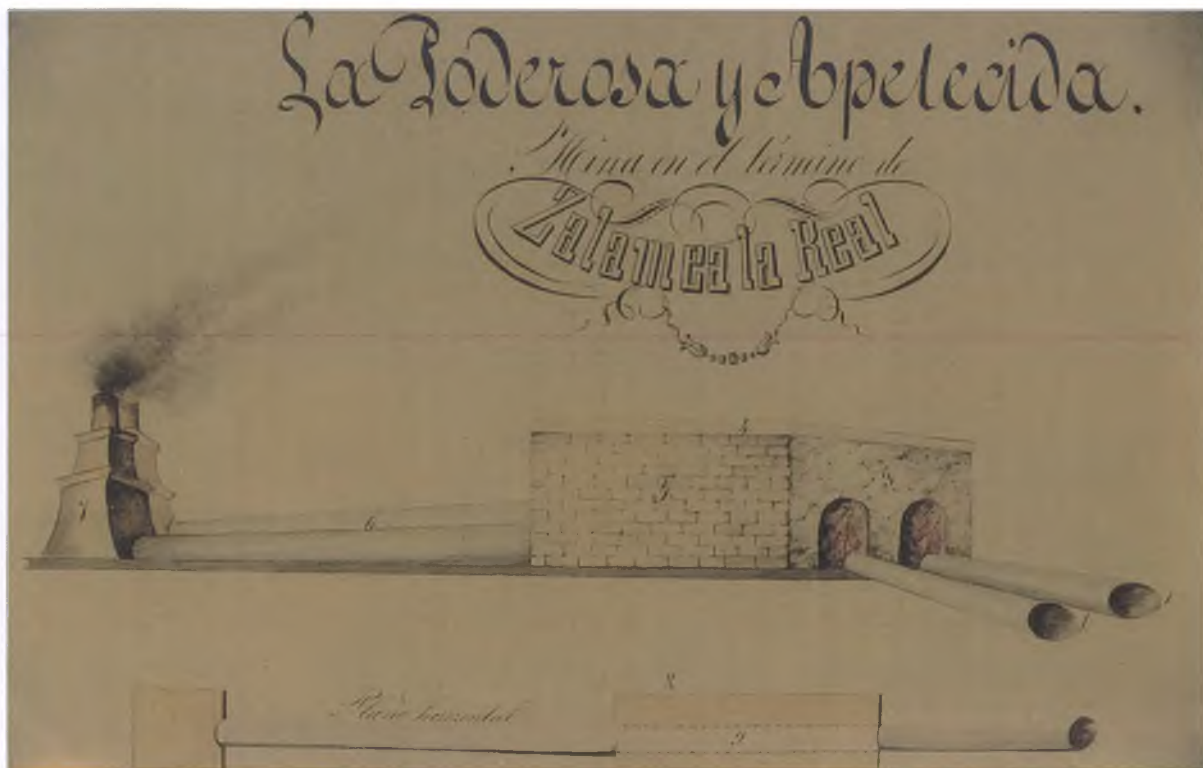 La Poderosa y Apetecida.
Mina en el término de
Zalamea la Real
4
5
3
7
6
1
1
8
Plano horizontal
9